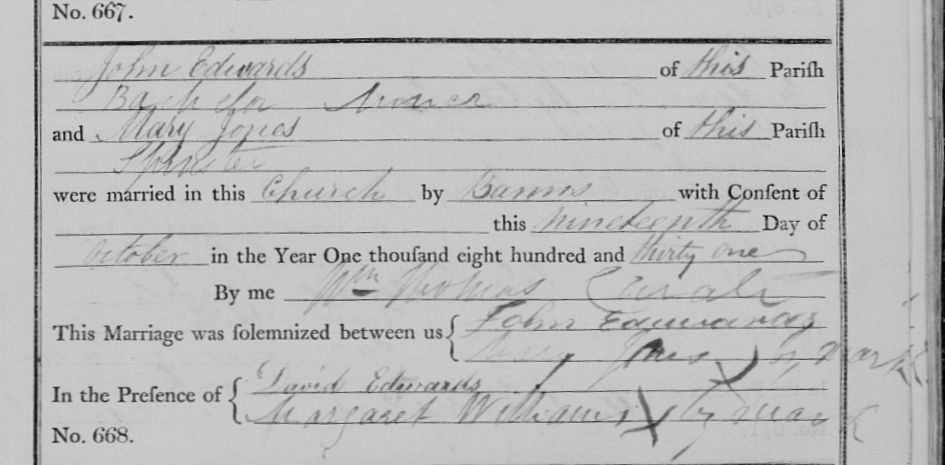 No. 667.
John Edwards of this Pariſh
Bachelor Miner
and Mary Jones of this Pariſh
Spinster
were married in this Church by Banns with Conſent of
this nineteenth Day of
October in the Year One thouſand eight hundred and thirty one
By me Wm Thomas Curate
This Marriage was ſolemnized between us { John Edwards
Mary Jones X by mark
In the Preſence of { David Edwards
Margaret Williams X by mark
No. 668.